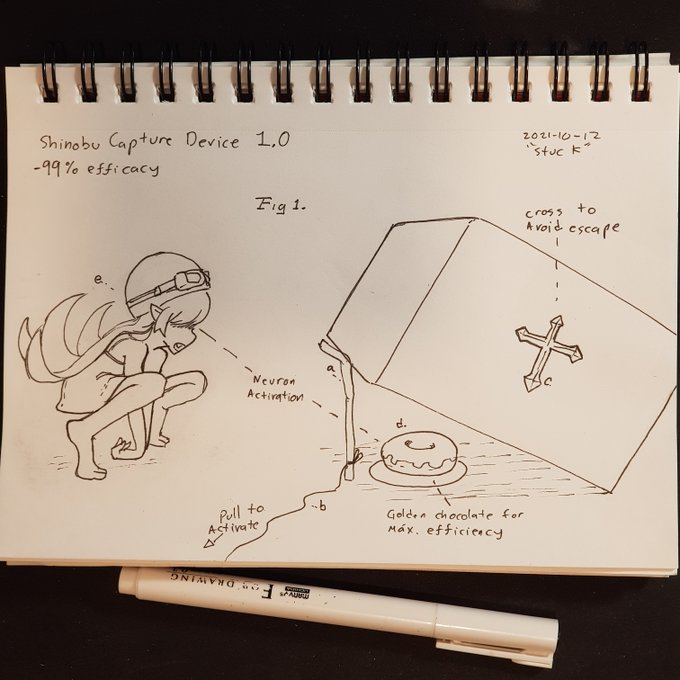 Shinobu Capture Device 1.0
-99% efficacy
2021-10-12
"Stuc K"
Fig 1.
cross to
Avoid escape
e.
a
c
Neuron
Activation
d.
b
Pull to
Activate
Golden chocolate for
Máx. efficiency
DRAWING
MARVY